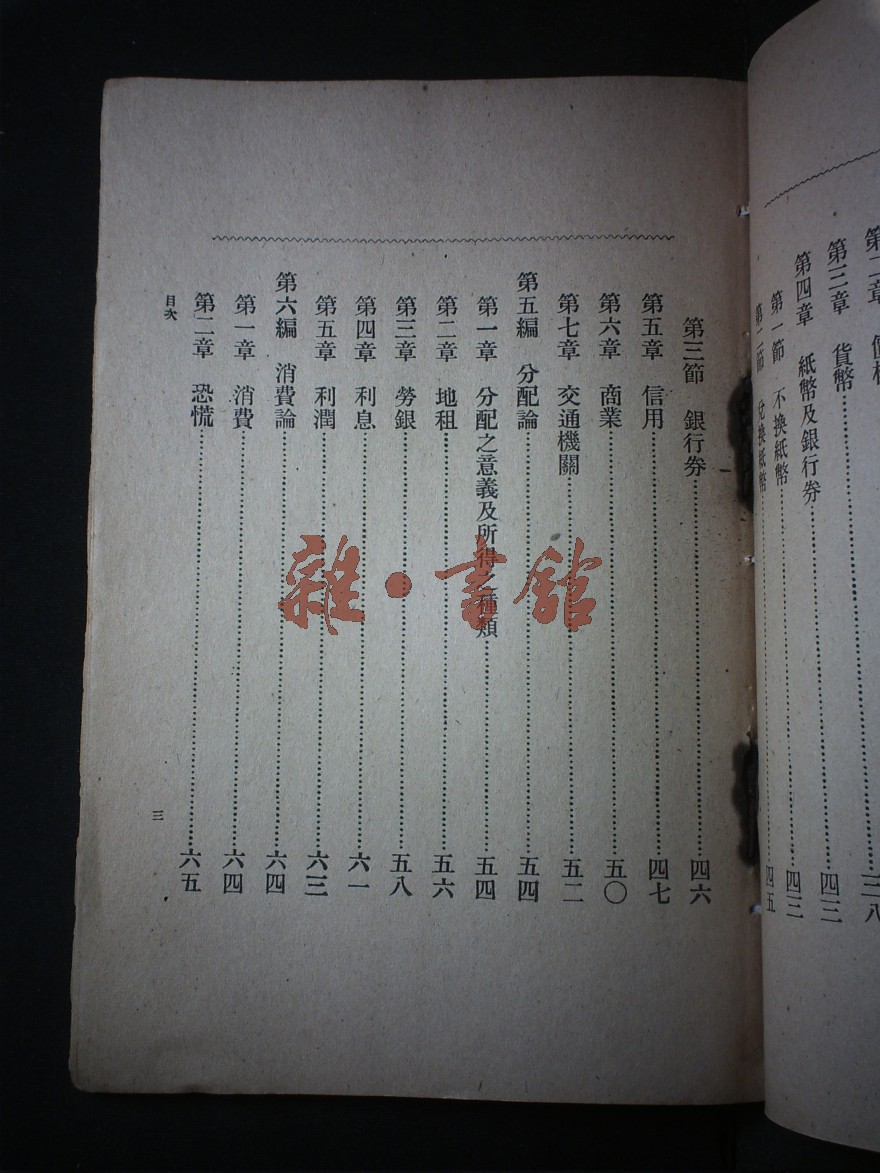 第二章
三八
第三章 貨幣 四三
第四章 紙幣及銀行券 四三
第一節 不換紙幣 四三
第二節 兌換紙幣 四五
第三節 銀行券 四六
第五章 信用 四七
第六章 商業 五〇
第七章 交通機關 五二
第五編 分配論 五四
第一章 分配之意義及所得之種類 五四
第二章 地租 五六
第三章 勞銀 五八
第四章 利息 六一
第五章 利潤 六三
第六編 消費論 六四
第一章 消費 六四
第二章 恐慌 六五
目次
三
雜·書館